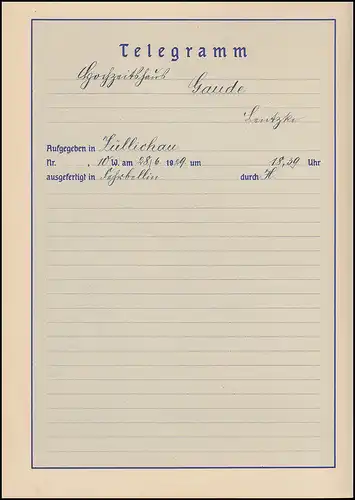 Telegramm
Hochzeitshaus
Gaude
Lentzke
Aufgegeben in Züllichau
Nr. , 10 W. am 28/6 1939 um 18,39 Uhr
ausgefertigt in Fehrbellin durch H